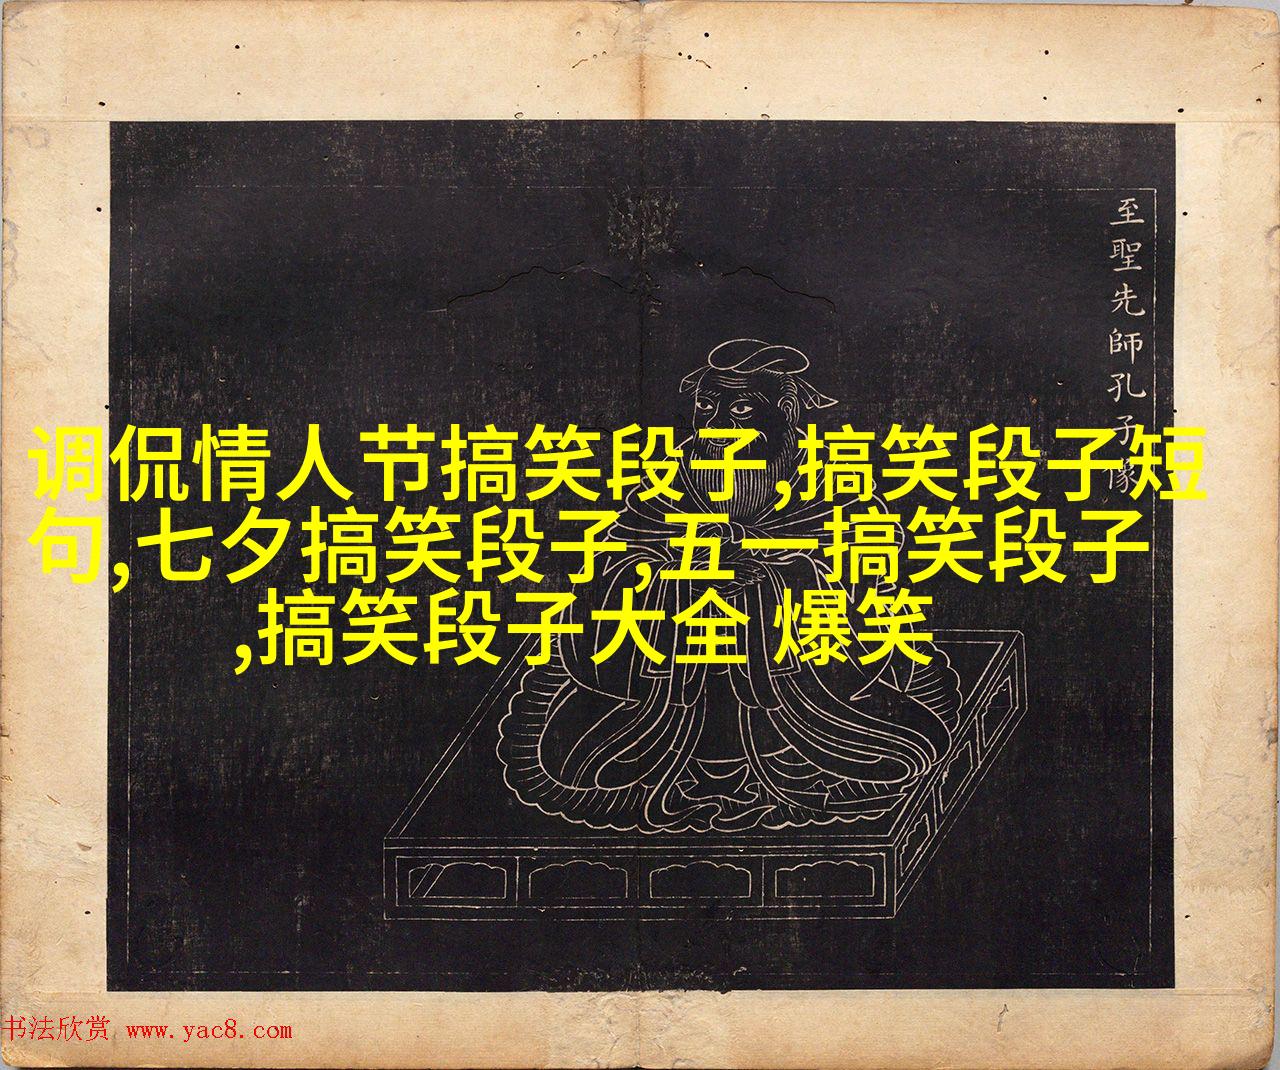 至聖先師孔子像
调侃情人节搞笑段子,搞笑段子短
句,七夕搞笑段子,五一搞笑段子
,搞笑段子大全 爆笑
书法欣赏 www.yac8.com